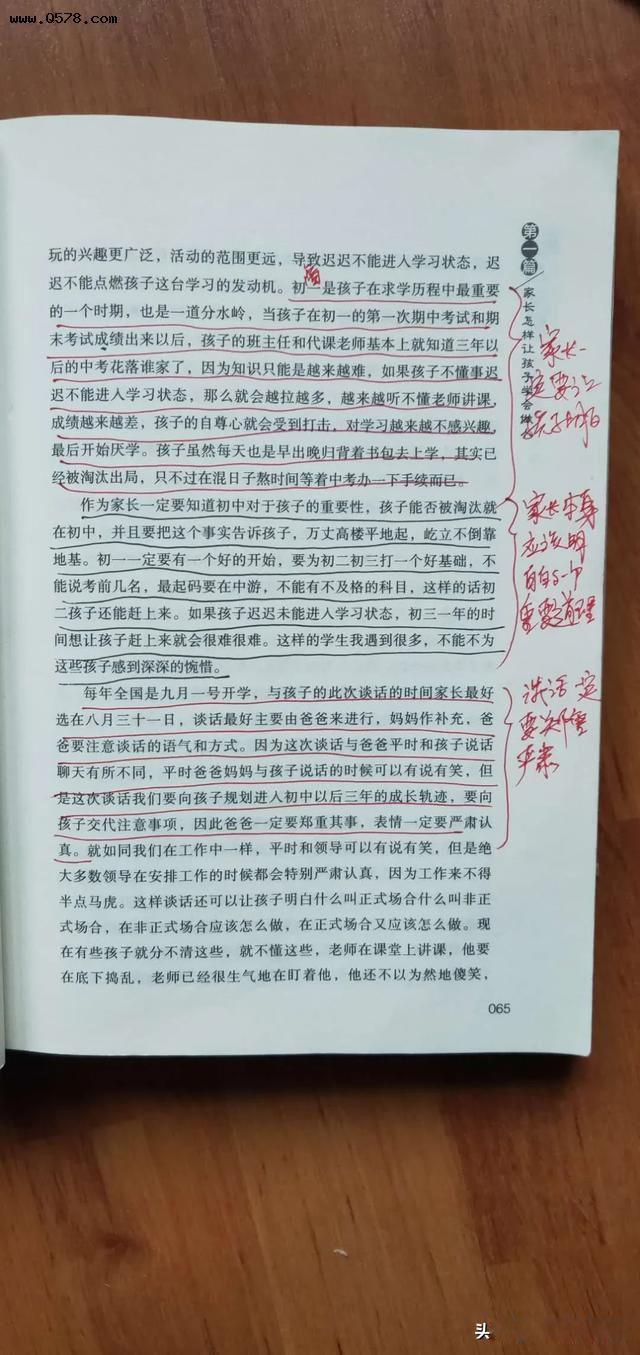 www.0578.com
玩的兴趣更广泛，活动的范围更远，导致迟迟不能进入学习状态，迟
迟不能点燃孩子这台学习的发动机。初一是孩子在求学历程中最重要
的一个时期，也是一道分水岭，当孩子在初一的第一次期中考试和期
末考试成绩出来以后，孩子的班主任和代课老师基本上就知道三年以
后的中考花落谁家了，因为知识只能是越来越难，如果孩子不懂事迟
迟不能进入学习状态，那么就会越拉越多，越来越听不懂老师讲课，
成绩越来越差，孩子的自尊心就会受到打击，对学习越来越不感兴趣，
最后开始厌学。孩子虽然每天也是早出晚归背着书包去上学，其实已
经被淘汰出局，只不过在混日子熬时间等着中考办一下手续而已。
作为家长一定要知道初中对于孩子的重要性，孩子能否被淘汰就
在初中，并且要把这个事实告诉孩子，万丈高楼平地起，屹立不倒靠
地基。初一一定要有一个好的开始，要为初二初三打一个好基础，不
能说考前几名，最起码要在中游，不能有不及格的科目，这样的话初
二孩子还能赶上来。如果孩子迟迟未能进入学习状态，初三一年的时
间想让孩子赶上来就会很难很难。这样的学生我遇到很多，不能不为
这些孩子感到深深的惋惜。
每年全国是九月一号开学，与孩子的此次谈话的时间家长最好
选在八月三十一日，谈话最好主要由爸爸来进行，妈妈作补充，爸
爸要注意谈话的语气和方式。因为这次谈话与爸爸平时和孩子说话
聊天有所不同，平时爸爸妈妈与孩子说话的时候可以有说有笑，但
是这次谈话我们要向孩子规划进入初中以后三年的成长轨迹，要向
孩子交代注意事项，因此爸爸一定要郑重其事，表情一定要严肃认
真。就如同我们在工作中一样，平时和领导可以有说有笑，但是绝
大多数领导在安排工作的时候都会特别严肃认真，因为工作来不得
半点马虎。这样谈话还可以让孩子明白什么叫正式场合什么叫非正
式场合，在非正式场合应该怎么做，在正式场合又应该怎么做。现
在有些孩子就分不清这些，就不懂这些，老师在课堂上讲课，他要
在底下捣乱，老师已经很生气地在盯着他，他还不以为然地傻笑，
065
第一篇
家长怎样让孩子学会做
家长一
定要让
孩子明白
家长本身
应该明
白的一个
重要道理
谈话一定
要郑重
严肃
头